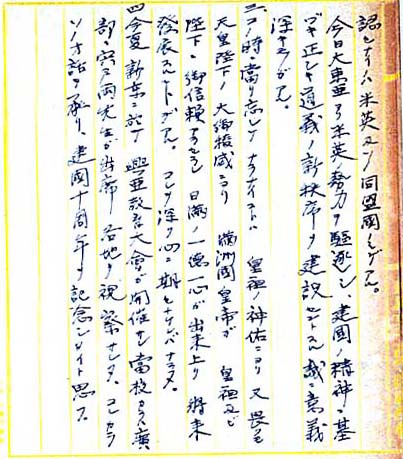 認セナイハ米英及ソノ同盟國ノミデアル。
今日大東亜ヨリ米英勢力ヲ駆逐シ、建國ノ精神ニ基
ヅキ正シキ道義ノ新秩序ヲ建設セントスル誠ニ意義
深キヲ
三、コノ時ニ當リ忘レテナラナイコトハ 皇祖ノ神佑ニヨリ又畏クモ
天皇陛下ノ大御稜威ニヨリ 満洲國皇帝ガ 皇祖及ビ
陛下ニ御信頼アラセラレ 日満ノ一徳一心ガ出来上リ 将来
発展スルコトガアル。コレヲ深ク心ニ期セナケレバナラヌ。
四、今夏新京ニ於テ興亜教育大會ガ開催サレ當校カラハ廣
部、宍戸両先生ガ出席各地ヲ視察サレタ。コレカラ
ソノオ話ヲ承リ、建國十周年ヲ記念シタイト思フ。